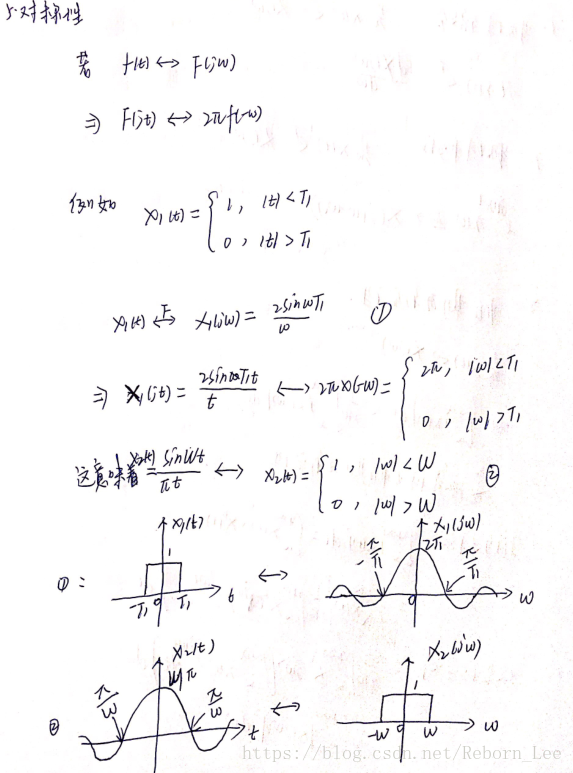 5.对称性
若 f(t) ↔ F(jw)
⇒ F(jt) ↔ 2πf(-w)
例如 x₁(t) = { 1, |t|<T₁
0, |t|>T₁
x₁(t) ↔F X₁(jw) = 2sinwT₁/w ①
⇒ X₁(jt) = 2sinT₁t/t ↔ 2πx(-w) = { 2π, |w|<T₁
0, |w|>T₁
这意味着 x₂(t) = sinWt/πt ↔ x₂(t) = { 1, |w|<W ②
0, |w|>W
①: x₁(t) 1 -T₁ 0 T₁ t ↔ X₁(jw) 2T₁ -π/T₁ π/T₁ 0 w
② x₂(t) W/π π/W π/W t ↔ X₂(jw) 1 -W 0 W w
https://blog.csdn.net/Reborn_Lee